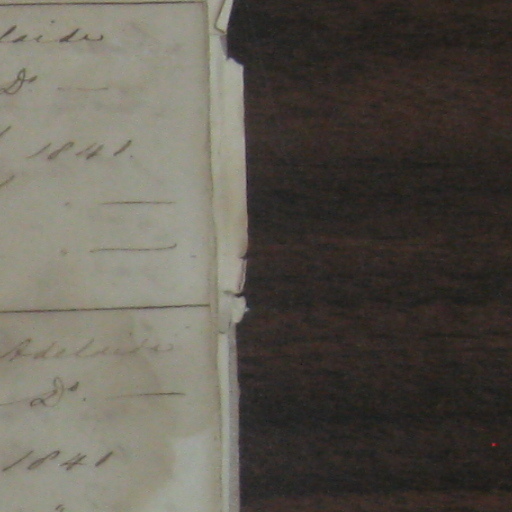 laide
Do —
1841.
—
—
Adelaide
— Do. —
1841